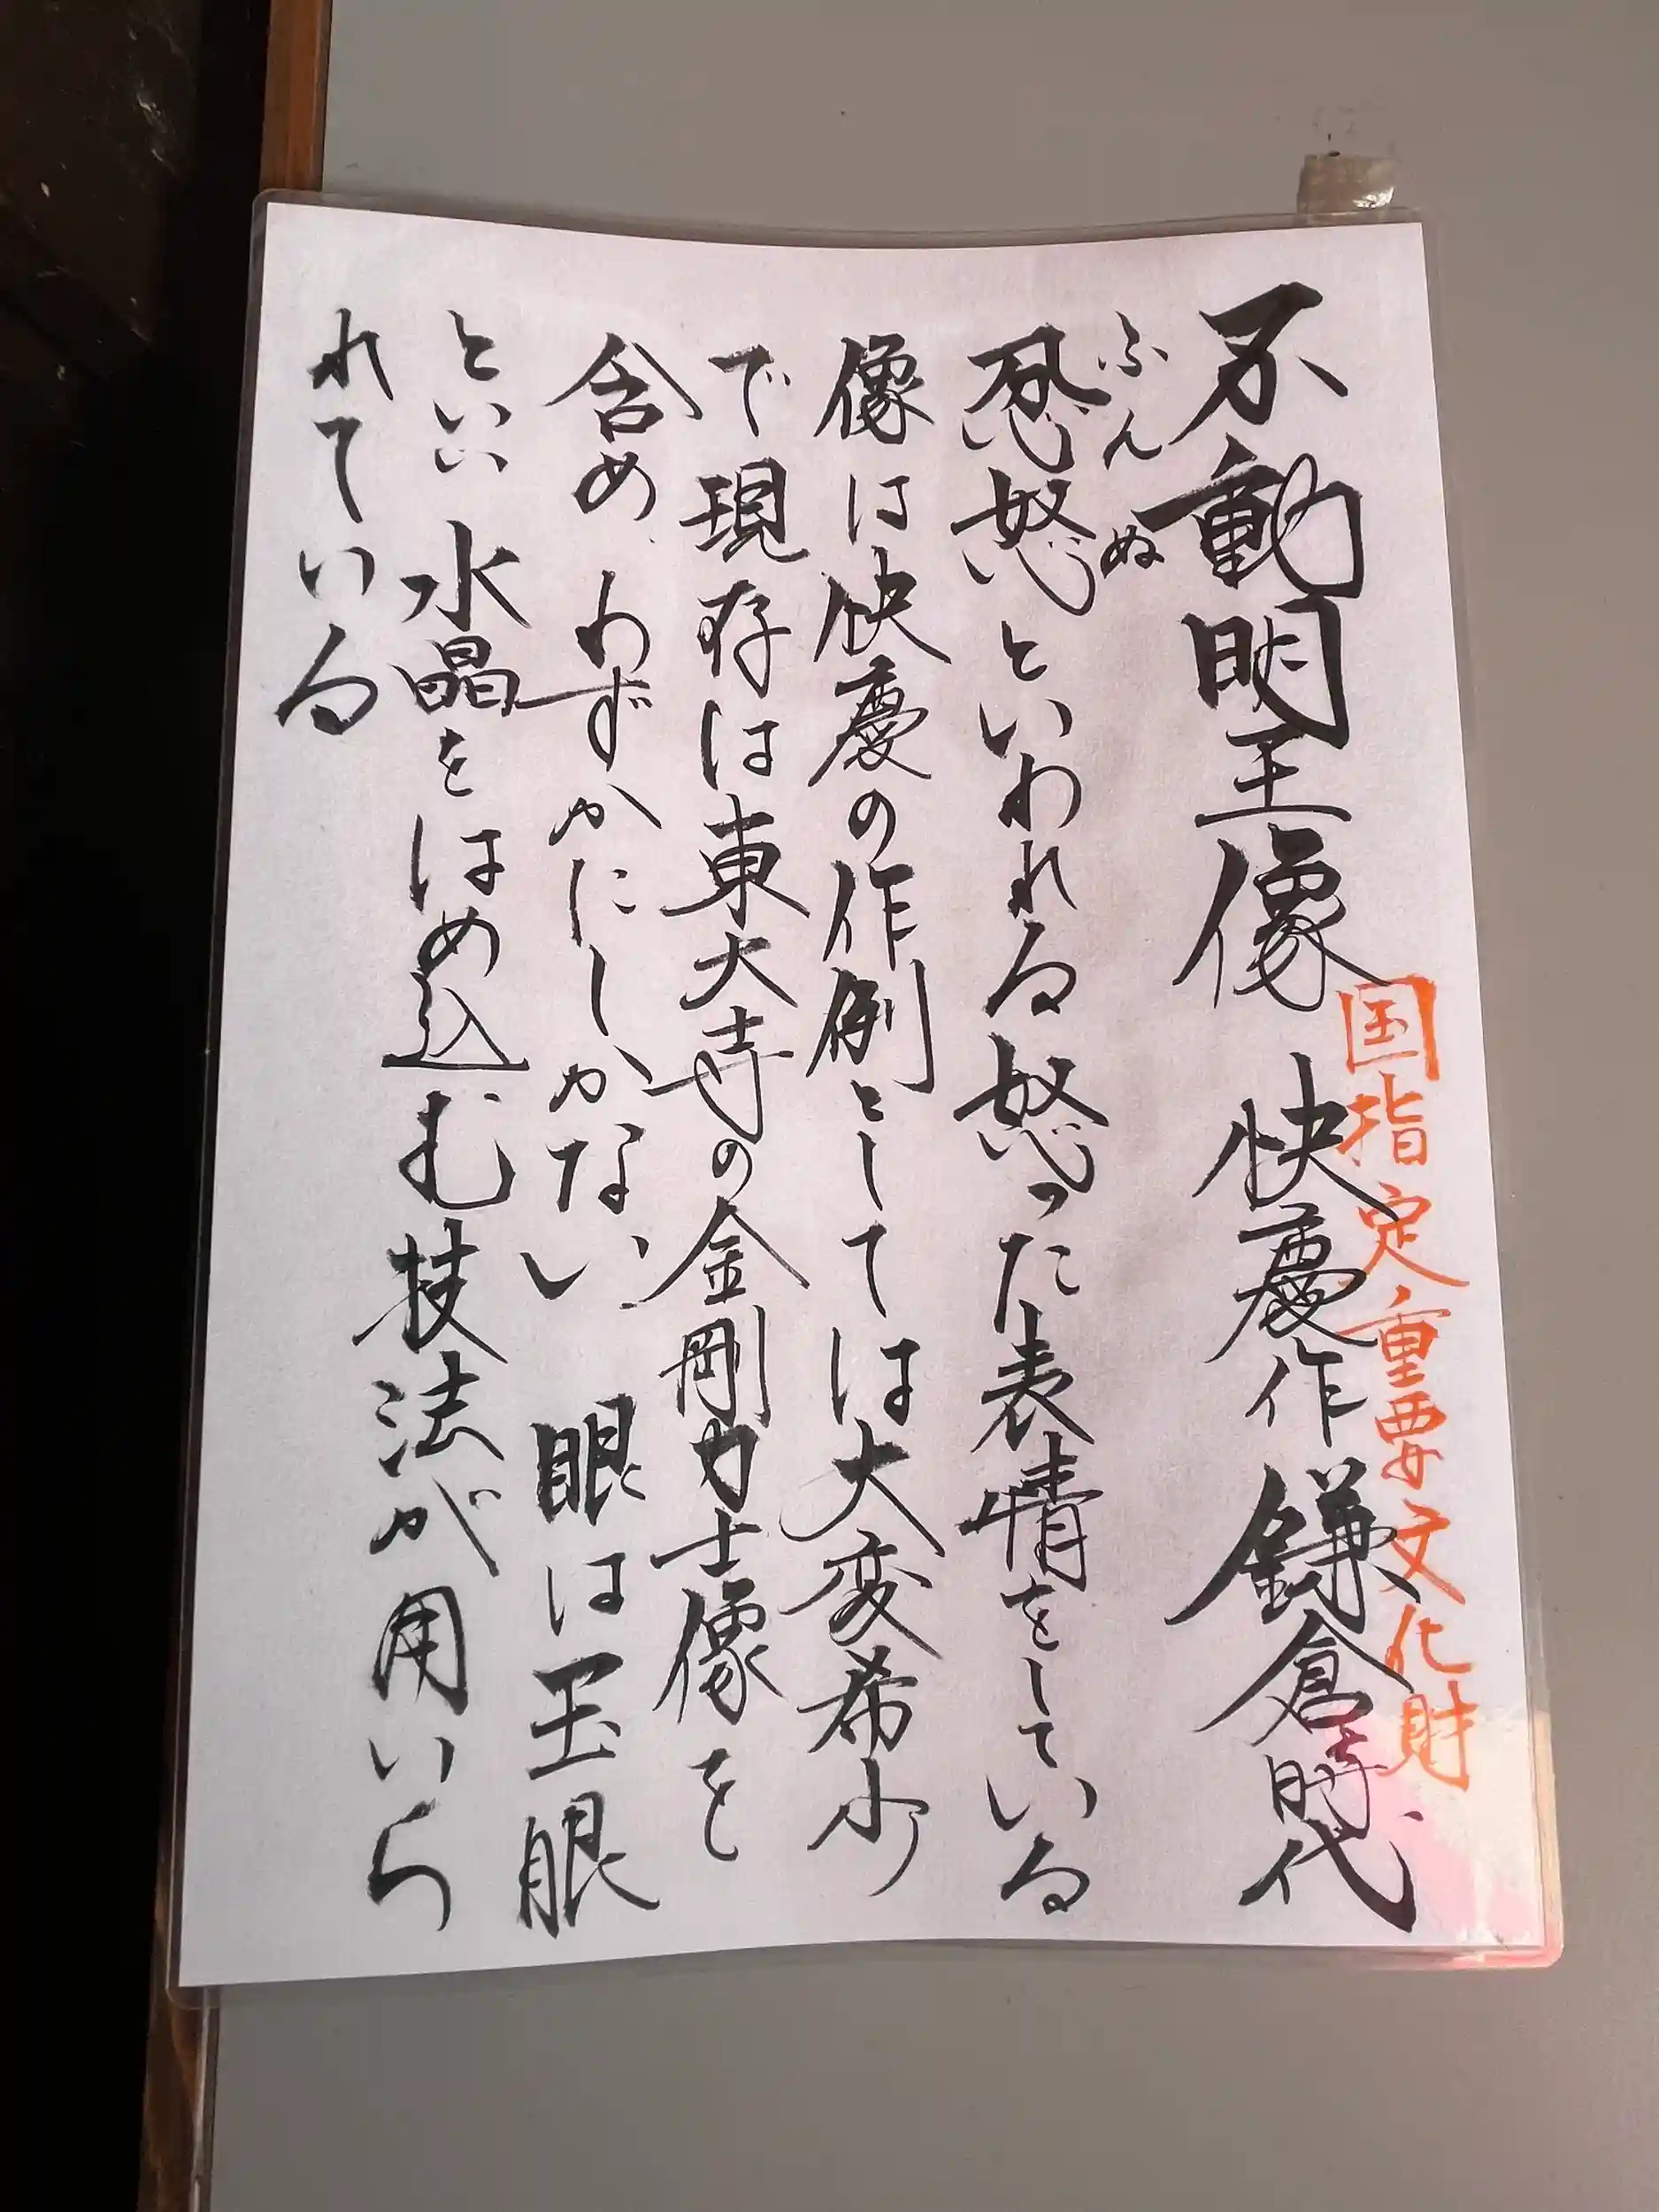 国指定重要文化財
不動明王像 快慶作 鎌倉時代
ふんぬ
忿怒といわれる怒った表情をしている
像は快慶の作例としては大変希少
で現存は東大寺の金剛力士像を
含め、わずかにしかない。眼は玉眼
といい水晶をはめ込む技法が用いら
れている